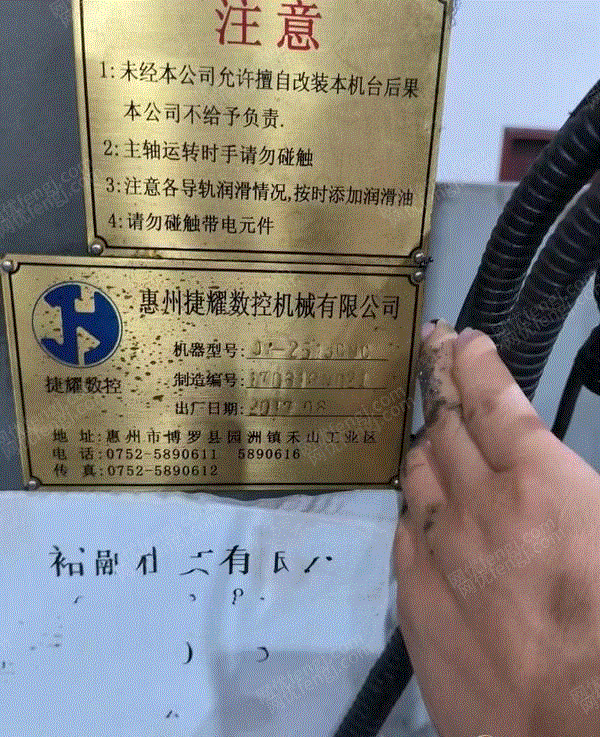 注意
1:未经本公司允许擅自改装本机台后果
本公司不给予负责.
2:主轴运转时手请勿碰触
3:注意各导轨润滑情况,按时添加润滑油
4:请勿碰触带电元件
惠州捷耀数控机械有限公司
捷耀数控
机器型号:
制造编号:
出厂日期:2017.08
地 址:惠州市博罗县园洲镇禾山工业区
电 话:0752-5890611 5890616
传 真:0752-5890612
有